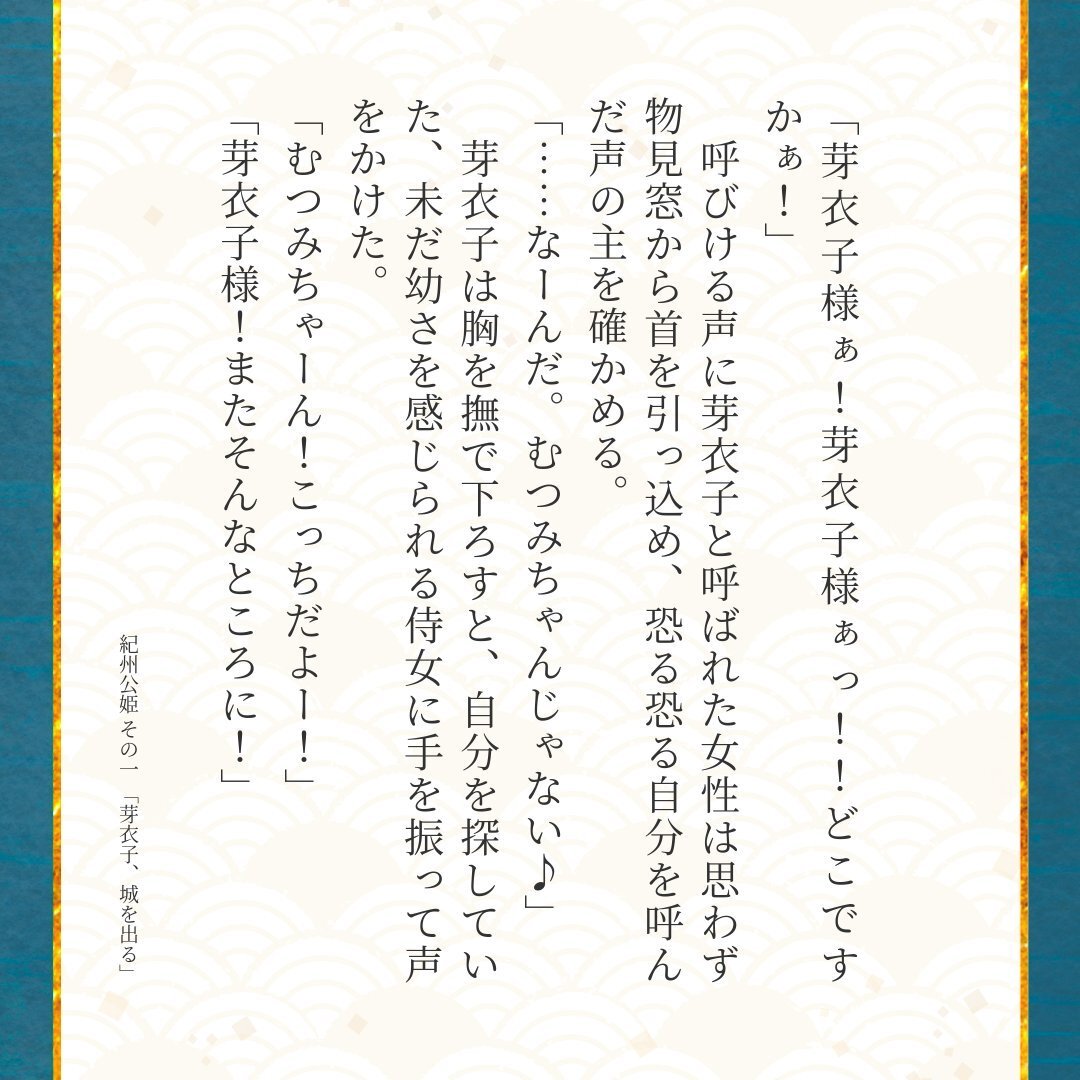 「芽衣子様ぁ!芽衣子様ぁっ!!どこです
かぁ!」
　呼びける声に芽衣子と呼ばれた女性は思わず
物見窓から首を引っ込め、恐る恐る自分を呼ん
だ声の主を確かめる。
「……なーんだ。むつみちゃんじゃない♪」
　芽衣子は胸を撫で下ろすと、自分を探してい
た、未だ幼さを感じられる侍女に手を振って声
をかけた。
「むつみちゃーん!こっちだよー!」
「芽衣子様!またそんなところに!」
紀州公姫 その一　「芽衣子、城を出る」